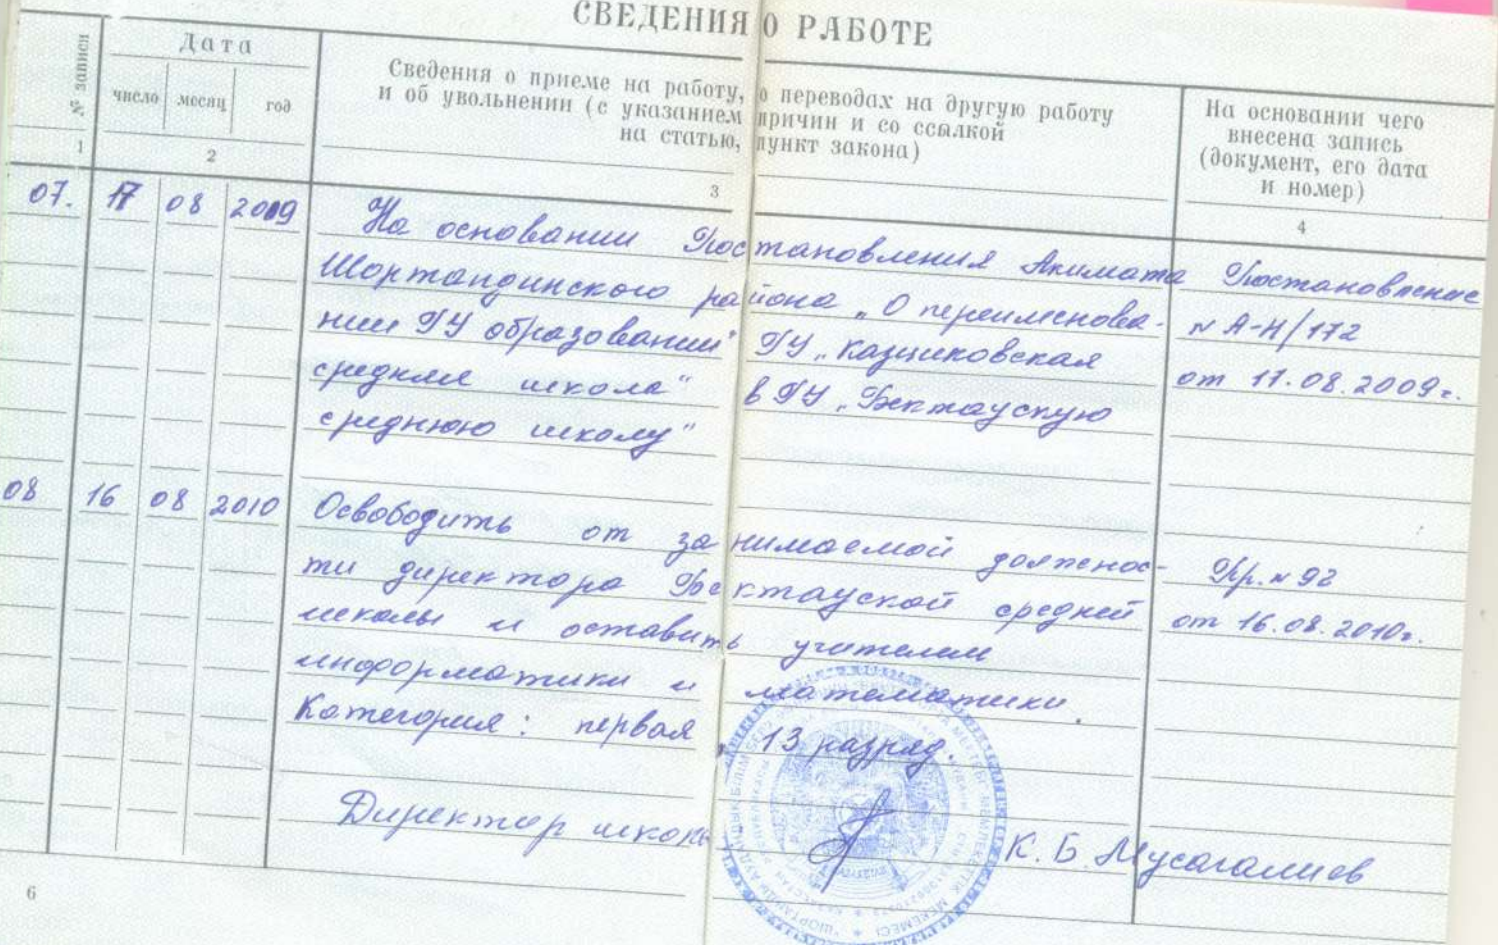 СВЕДЕНИЯ О РАБОТЕ
№ записи
Дата
число месяц год
Сведения о приеме на работу, о переводах на другую работу
и об увольнении (с указанием причин и со ссылкой
на статью, пункт закона)
На основании чего
внесена запись
(документ, его дата
и номер)
1 2 3 4
07. 17 08 2009 На основании Постановления Акимата Постановление
Шортандинского района „О переименова- № А-Н/172
нии ГУ образования" ГУ „Казциковская от 11.08.2009г.
средняя школа" в ГУ „Бектаускую
среднюю школу"
08 16 08 2010 Освободить от занимаемой должнос- Пр. № 92
ти директора Бектауской средней от 16.08.2010г.
школы и оставить учителем
информатики и математики.
Категория: первая, 13 разряд.
Директор школы К. Б. Мусагалиев
6